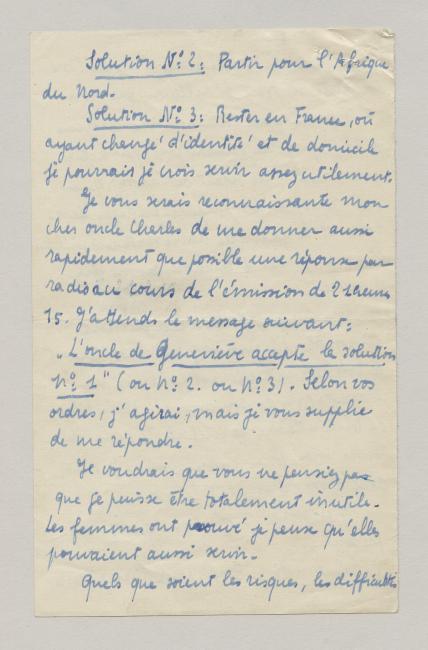 Solution N° 2: Partir pour l'Afrique
du Nord.
Solution N° 3: Rester en France, où
ayant changé d'identité et de domicile
je pourrais je crois servir assez utilement.
Je vous serais reconnaissante mon
cher oncle Charles de me donner aussi
rapidement que possible une réponse par
radio au cours de l'émission de 21 heures
15. J'attends le message suivant:
„L'oncle de Geneviève accepte la solution
n° 1" (ou n° 2. ou n° 3). Selon vos
ordres, j'agirai, mais je vous supplie
de me répondre.
Je voudrais que vous ne pensiez pas
que je puisse être totalement inutile.
Les femmes ont prouvé je pense qu'elles
pouvaient aussi servir.
Quels que soient les risques, les difficultés